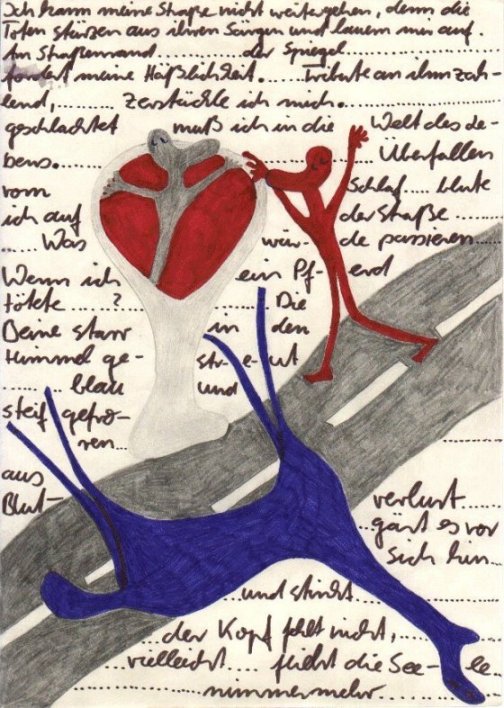 Ich kann meine Straße nicht weitergehen, denn die
Toten stürzen aus ihren Särgen und lauern mir auf.
Am Straßenrand .......... der Spiegel ..........
fordert meine Häßlichkeit.... Tribute an ihm zah-
lend, ........ Zerstückle ich mich. ..........
geschlachtet muß ich in die Welt des Le-
bens. ...... Überfallen
vom Schlaf .... blute
ich auf der Straße ....
.... Was wür- de passieren ....
Wenn ich ein Pf- erd
tötete ...... ? .... Die
Beine starr in den
Himmel ge- str-e-ckt
...... blau und
steif gefro-
ren...
aus
Blut- verlust ...
gärt es vor
sich hin ...
... und stinkt ...
.... der Kopf fehlt nicht, ....
.... vielleicht .... flieht die See- le
.......... nimmermehr ..........